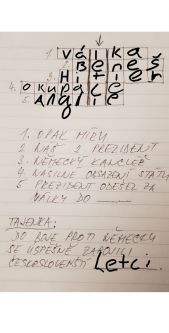 1. válka
2. Beneš
3. Hitler
4. okupace
5. Anglie
1. OPAK MÍRU
2. NÁŠ 2. PREZIDENT
3. NĚMECKÝ KANCLÉŘ
4. NÁSILNÉ OBSAZENÍ STÁTU
5. PREZIDENT ODEŠEL ZA
VÁLKY DO ____
TAJENKA:
DO BOJE PROTI NĚMECKU
SE ÚSPĚŠNĚ ZAPOJILI
ČESKOSLOVENŠTÍ Letci.